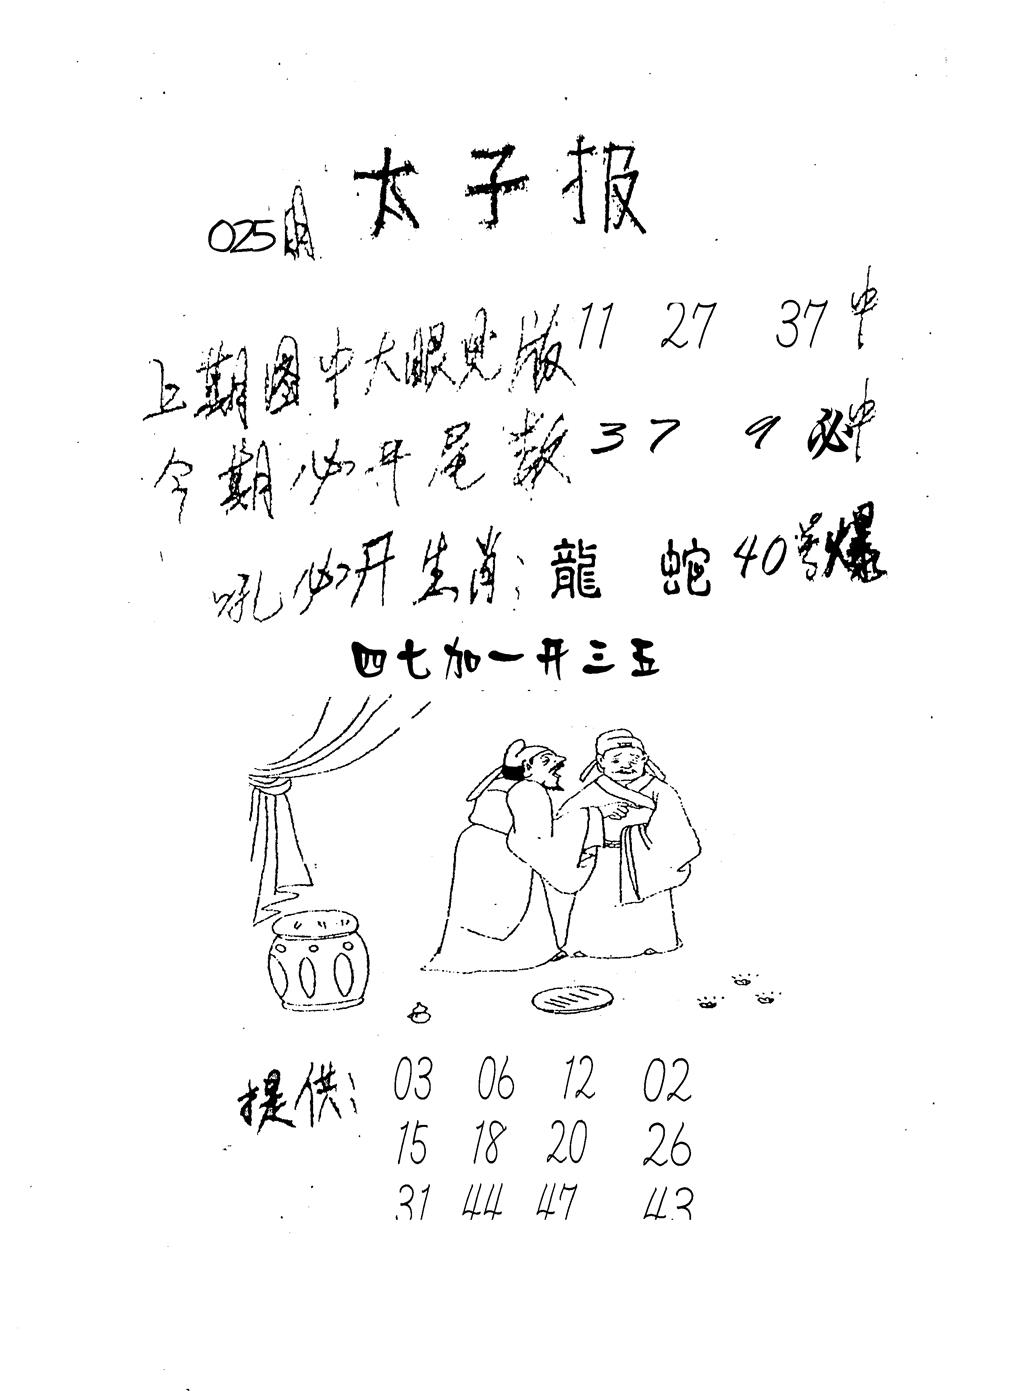 太子报
025期
上期图中大眼见版 11 27 37 中
今期必开尾数 3 7 9 必中
必开生肖: 龍 蛇 40号爆
四七加一开三五
提供: 03 06 12 02
15 18 20 26
31 44 47 43